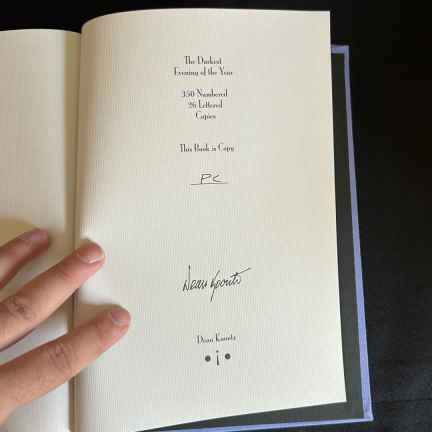 The Darkest
Evening of the Year
350 Numbered
26 Lettered
Copies
This Book is Copy
PC
Dean Koontz
Dean Koontz